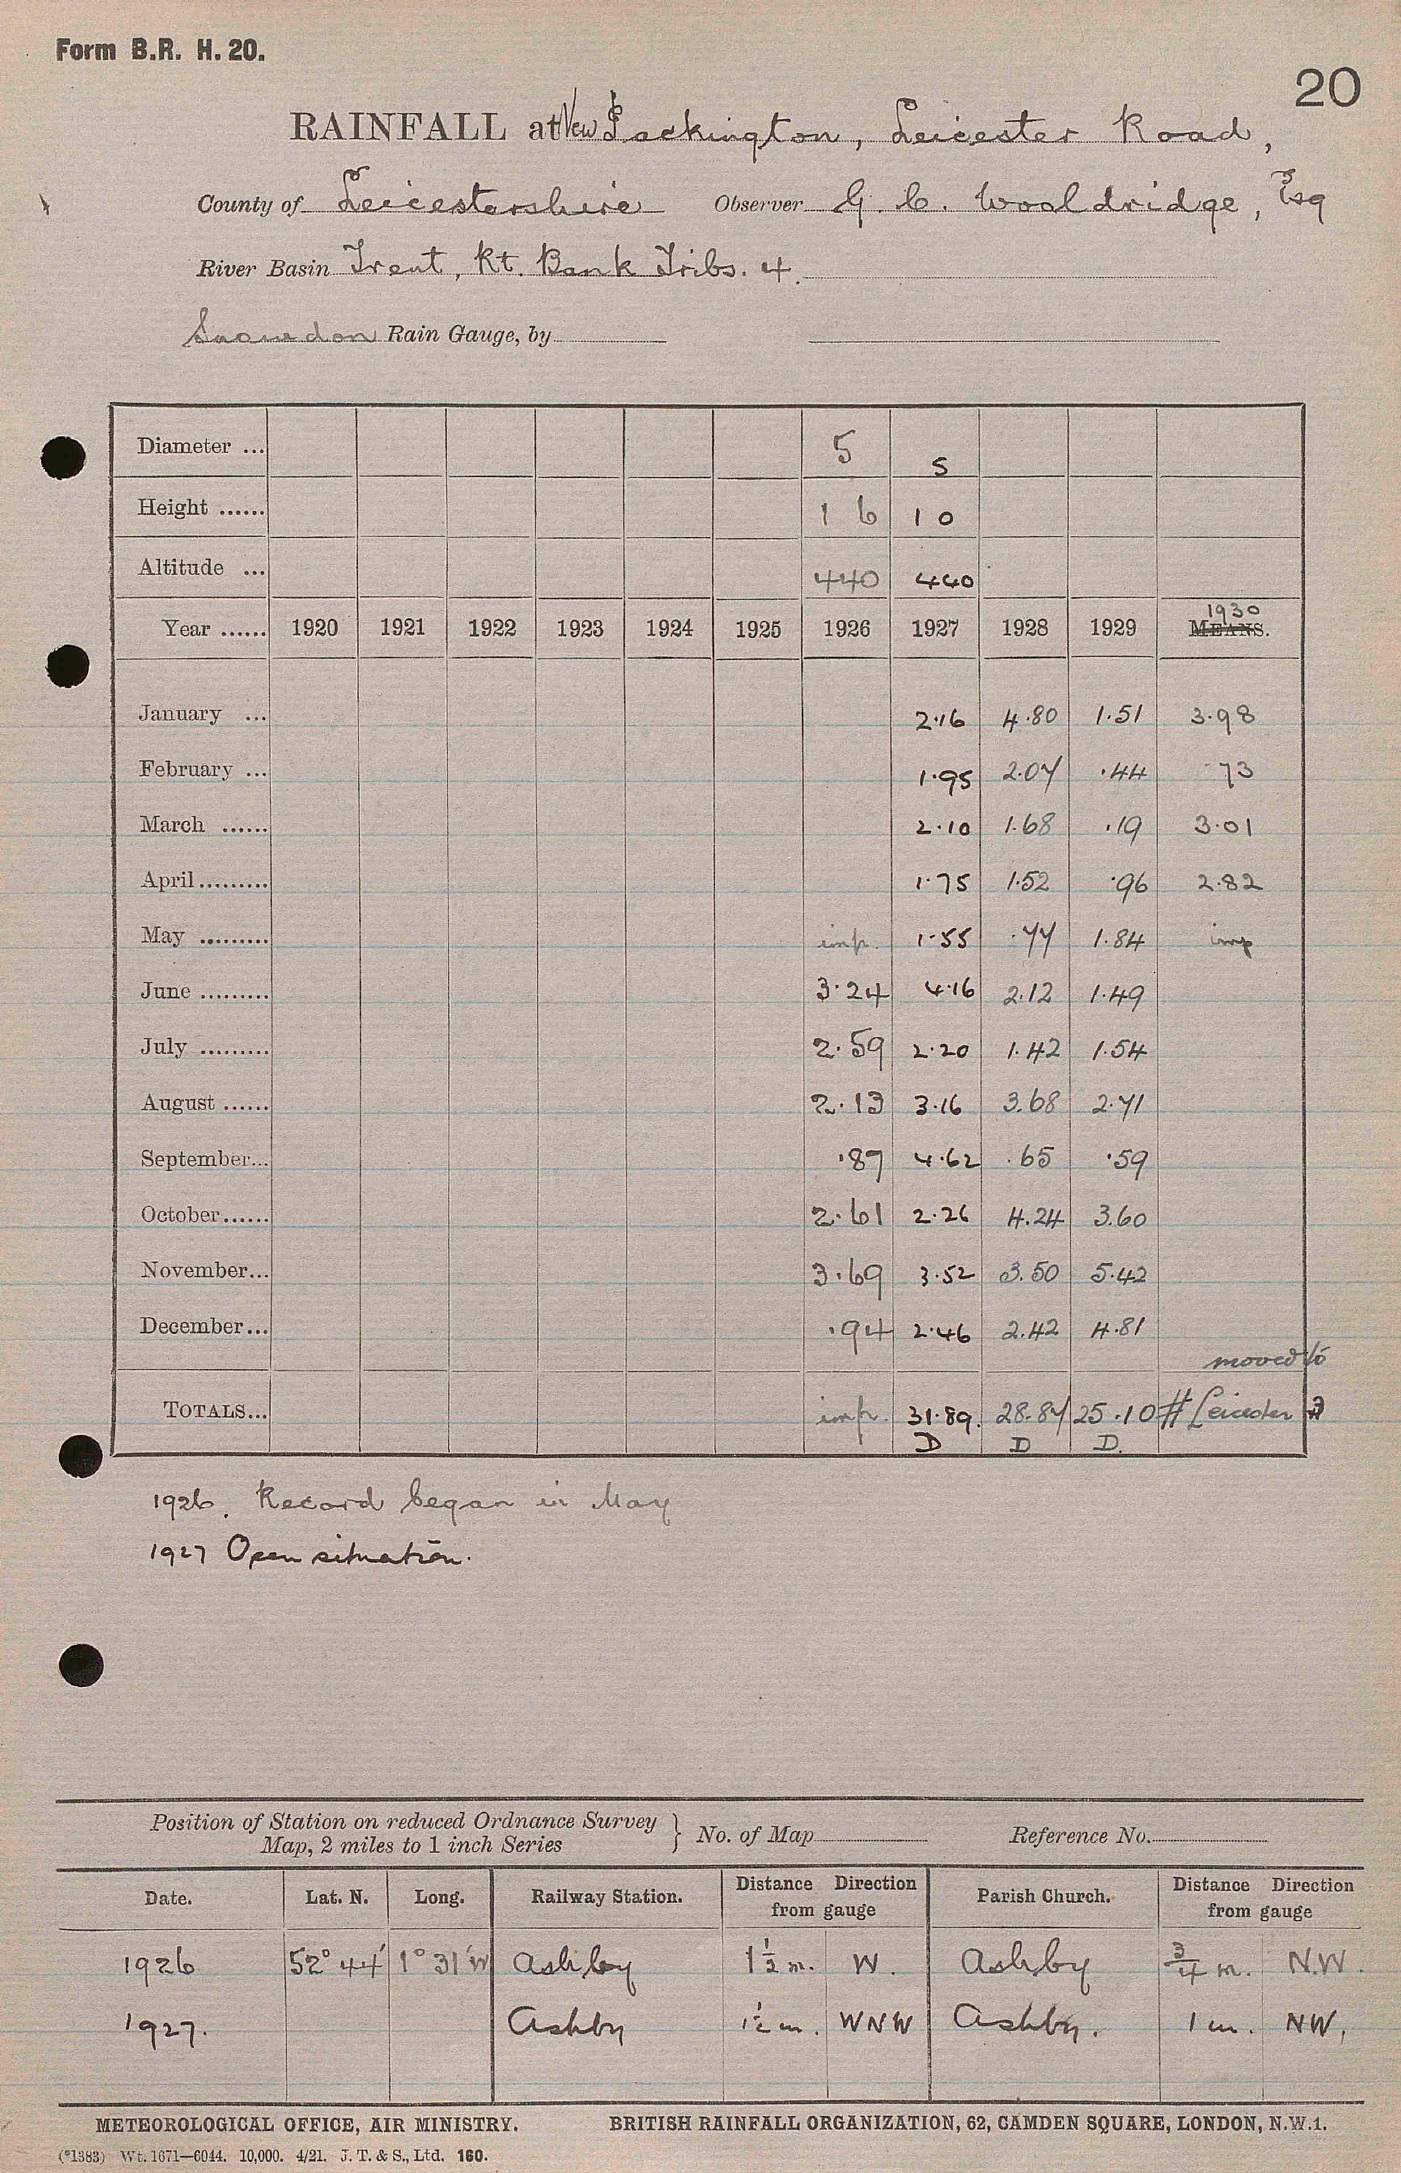 Form B.R. H. 20.
20
RAINFALL at New Packington, Leicester Road,
County of Leicestershire Observer G. C. Wooldridge, Esq
River Basin Trent, Rt. Bank Tribs. 4.
Snowdon Rain Gauge, by
Diameter ... 5 5
Height ...... 1 6 1 0
Altitude ... 440 440
1930
Year ...... 1920 1921 1922 1923 1924 1925 1926 1927 1928 1929 MEANS.
January ... 2.16 4.80 1.51 3.98
February ... 1.95 2.07 .44 .73
March ...... 2.10 1.68 .19 3.01
April ......... 1.75 1.52 .96 2.82
May ......... imp. 1.55 .77 1.84 imp
June ......... 3.24 4.16 2.12 1.49
July ......... 2.59 2.20 1.42 1.54
August ...... 2.13 3.16 3.68 2.71
September... .87 4.62 .65 .59
October...... 2.61 2.26 4.24 3.60
November... 3.69 3.52 3.50 5.42
December... .94 2.46 2.42 4.81
moved to
TOTALS... imp. 31.89. 28.87 25.10 # Leicester #
D D D.
1926. Record began in May
1927 Open situation.
Position of Station on reduced Ordnance Survey
Map, 2 miles to 1 inch Series } No. of Map Reference No.
Date. Lat. N. Long. Railway Station. Distance Direction from gauge Parish Church. Distance Direction from gauge
1926 52° 44' 1° 31' W Ashby 1½ m. W. Ashby ¾ m. N.W.
1927. Ashby 1½ m. WNW Ashby. 1 m. NW.
METEOROLOGICAL OFFICE, AIR MINISTRY. BRITISH RAINFALL ORGANIZATION, 62, CAMDEN SQUARE, LONDON, N.W.1.
(*1383) Wt. 1671—6044. 10,000. 4/21. J. T. & S., Ltd. 160.